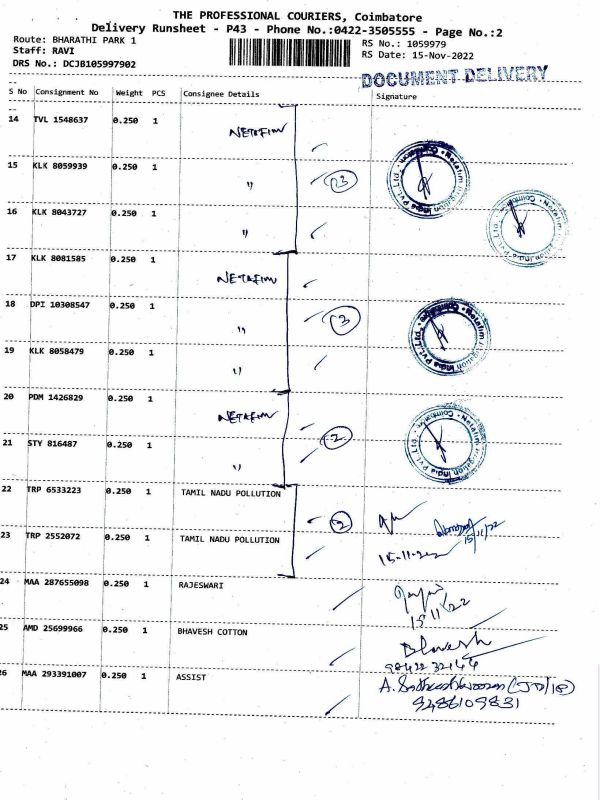 THE PROFESSIONAL COURIERS, Coimbatore
Delivery Runsheet - P43 - Phone No.:0422-3505555 - Page No.:2
Route: BHARATHI PARK 1
RS No.: 1059979
Staff: RAVI
RS Date: 15-Nov-2022
DRS No.: DCJB105997902
DOCUMENT DELIVERY
S No Consignment No Weight PCS Consignee Details Signature
14 TVL 1548637 0.250 1 NETAFIM
15 KLK 8059939 0.250 1 " 3
16 KLK 8043727 0.250 1 "
17 KLK 8081585 0.250 1 NETAFIM
18 DPI 10308547 0.250 1 " 3
19 KLK 8058479 0.250 1 "
20 PDM 1426829 0.250 1 NETAFIM
21 STY 816487 0.250 1 " 2
22 TRP 6533223 0.250 1 TAMIL NADU POLLUTION 2
15/11/22
23 TRP 2552072 0.250 1 TAMIL NADU POLLUTION
15-11-22
24 MAA 287655098 0.250 1 RAJESWARI
15/11/22
25 AMD 25699966 0.250 1 BHAVESH COTTON
Bhavesh
9842232144
26 MAA 293391007 0.250 1 ASSIST
9486109831
Netafim Irrigation India Pvt. Ltd. Coimbatore
Netafim Irrigation India Pvt. Ltd. Coimbatore
Netafim Irrigation India Pvt. Ltd. Coimbatore
Netafim Irrigation India Pvt. Ltd. Coimbatore